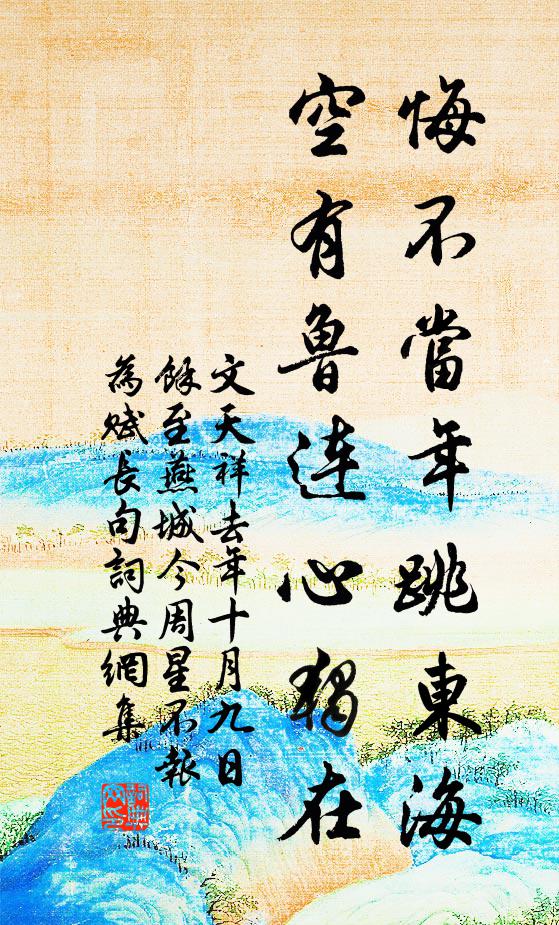 悔不當年跳東海
空有魯連心獨在
文天祥去年十月九日
餘至燕城今周星不報
為賦長句詞典網集